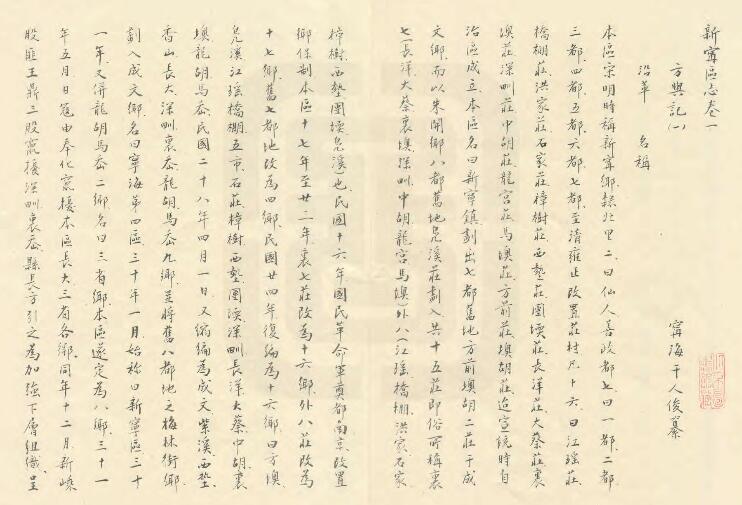 新寧區志卷一
方輿記(一)
寧海干人俊纂
沿革 名稱
本區宋明時稱新寧鄉隸於里二曰仙人善政都七曰一都二都
三都四都五都六都七都至清雍正改置莊村凡十六曰江瑤莊
橋棚莊洪家莊石家莊樟樹莊西墊莊團堧莊長洋莊大蔡莊裏
澳莊深甽莊中胡莊龍宮莊馬澳莊方前莊墺胡莊迨宣統時自
治區成立本區名曰新寧鎮劃出七都舊地方前墺胡二莊于成
文鄉而以朱開鄉八都舊地凫溪莊劃入共十五莊即俗所稱裏
七(長洋大蔡裏墺深甽中胡龍宮馬墺)外八(江瑤橋棚洪家石家
樟樹西墊團堧凫溪)也民國十六年國民革命軍奠都南京改置
鄉保制本區十七年至廿二年裏七莊改為十六鄉外八莊改為
十七鄉舊七都地改為四鄉民國廿四年復編為十六鄉曰方墺
凫溪江瑤橋棚五市石莊樟樹西墊團溪深甽長洋大蔡中胡裏
墺龍胡馬岙民國二十八年四月一日又縮編為成文紫溪西墊
香山長大深甽裏岙龍胡馬岙九鄉並將舊八都地之梅林街鄉
劃入成文鄉名曰寧海第四區三十年一月始稱曰新寧區三十
一年又併龍胡馬岙二鄉名曰三省鄉本區遂定為八鄉三十一
年五月日寇由奉化竄擾本區長大三省各鄉同年十二月新嵊
股匪王鼎三股竄擾深甽裏岙縣長方引之為加強下層組織呈